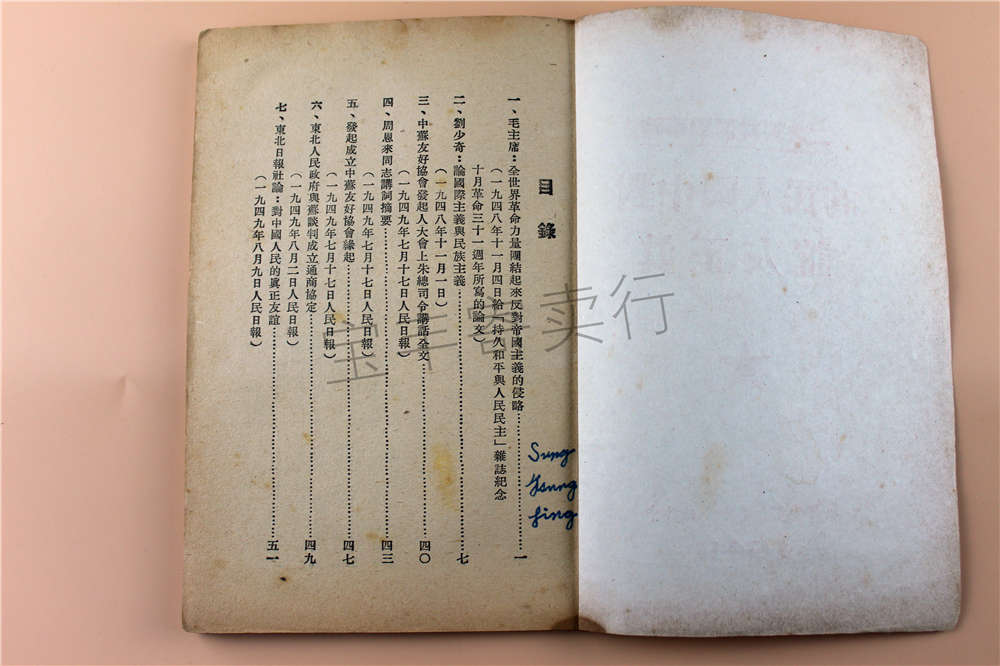 目錄
一、毛主席：全世界革命力量團結起來反對帝國主義的侵略……一
（一九四八年十一月四日給「持久和平與人民民主」雜誌紀念
十月革命三十一週年所寫的論文）
二、劉少奇：論國際主義與民族主義……七
（一九四八年十一月一日）
三、中蘇友好協會發起人大會上朱總司令講話全文……四〇
（一九四九年七月十七日人民日報）
四、周恩來同志講詞摘要……四三
（一九四九年七月十七日人民日報）
五、發起成立中蘇友好協會緣起……四七
（一九四九年七月十七日人民日報）
六、東北人民政府與蘇談判成立通商協定……四九
（一九四九年八月二日人民日報）
七、東北日報社論：對中國人民的眞正友誼……五一
（一九四九年八月九日人民日報）
Sung
Tsung
ling
卖行